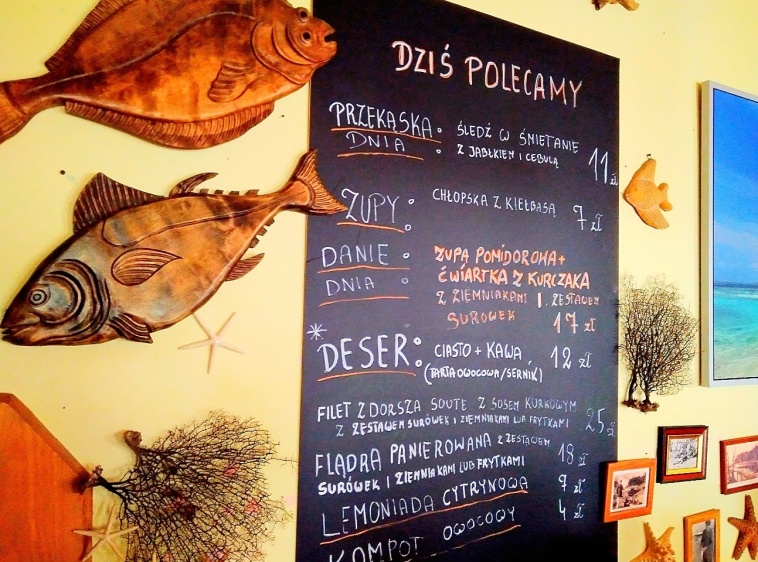 DZIŚ POLECAMY
PRZEKĄSKA: ŚLEDŹ W ŚMIETANIE
DNIA: Z JABŁKIEM I CEBULĄ 11 zł
ZUPY: CHŁOPSKA Z KIEŁBASĄ 7 zł
DANIE: ZUPA POMIDOROWA+
DNIA: ĆWIARTKA Z KURCZAKA
Z ZIEMNIAKAMI I ZESTAWEM
SURÓWEK 17 zł
* DESER: CIASTO + KAWA 12 zł
(TARTA OWOCOWA/SERNIK)
FILET Z DORSZA SOUTE Z SOSEM KURKOWYM
Z ZESTAWEM SURÓWEK I ZIEMNIAKAMI LUB FRYTKAMI 25 zł
FLĄDRA PANIEROWANA Z ZESTAWEM
SURÓWEK I ZIEMNIAKAMI LUB FRYTKAMI 18 zł
LEMONIADA CYTRYNOWA 9 zł
KOMPOT OWOCOWY 4 zł